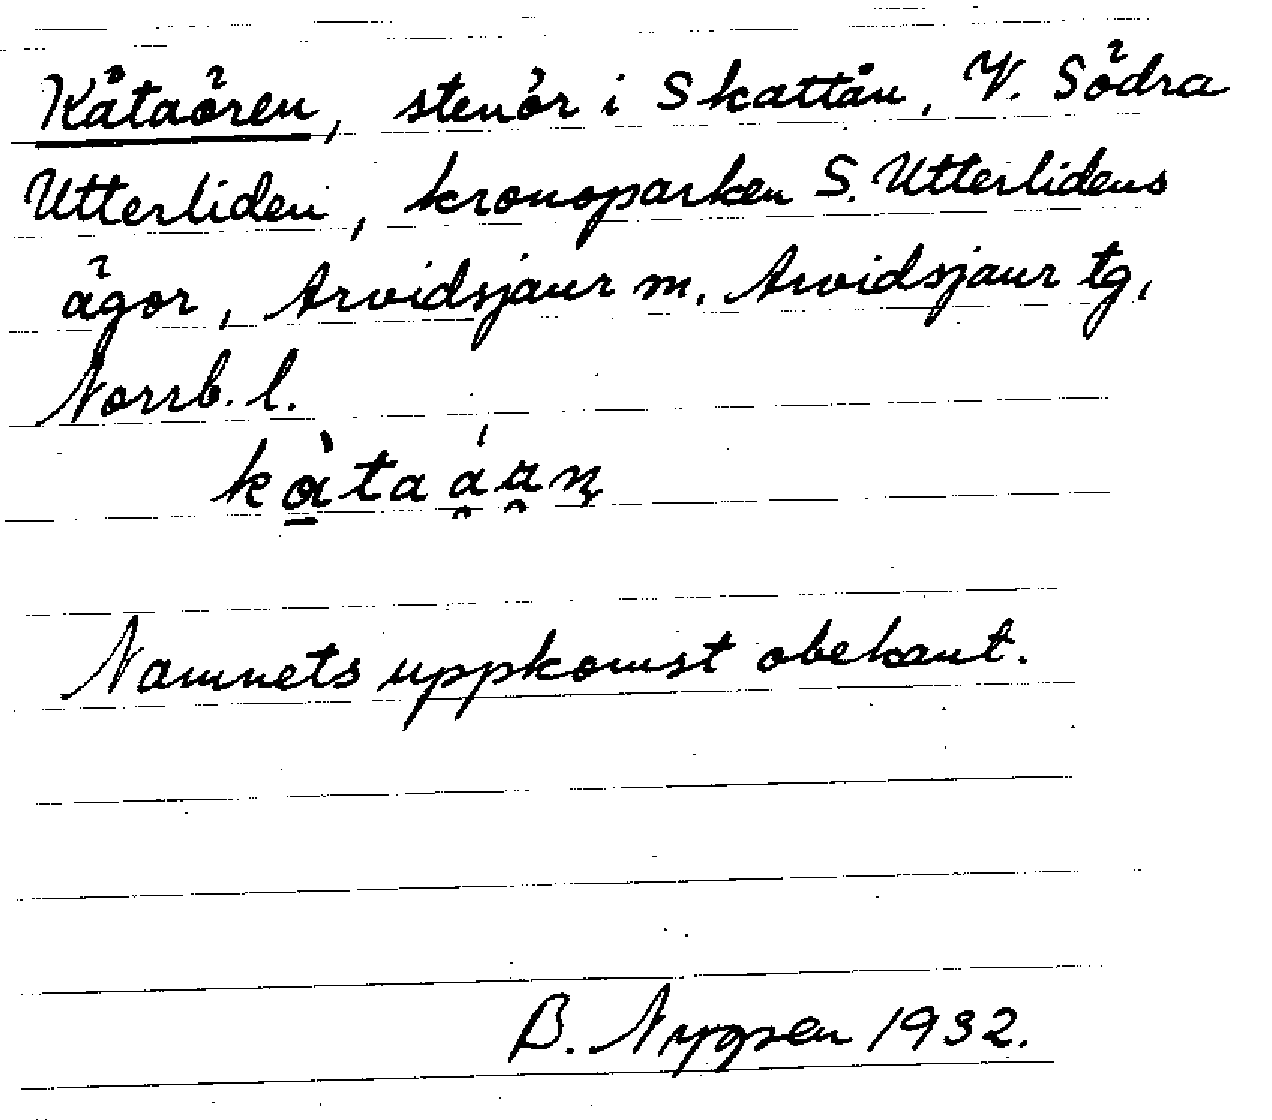 Kåtaören, stenör i Skattån, V. Södra
Utterliden, kronoparken S. Utterlidens
ägor, Arvidsjaur m. Arvidsjaur tg,
Norrb. l.
Namnets uppkomst obekant.
B. Nygren 1932.